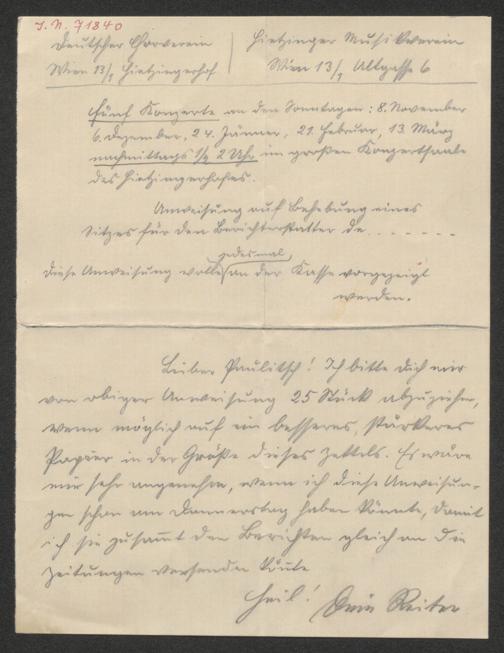 J. N. 71840
Deutscher Chorverein
Wien 13/1 Hietzingerhof
Hietzinger Musikverein
Wien 13/1 Altgasse 6
Fünf Konzerte an den Sonntagen: 8. November
6. Dezember, 24. Jänner, 21. Februar, 13. März
nachmittags 1/2 2 Uhr im großen Konzertsaale
des Hietzingerhofes.
Anweisung auf Behebung eines
Sitzes für den Berichterstatter de.......
jedesmal
diese Anweisung wolle an der Kasse vorgezeigt
werden.
Lieber Paulitsch! Ich bitte Dich mir
von obiger Anweisung 25 Stück abzuziehen,
wenn möglich auf ein besseres, stärkeres
Papier in der Größe dieses Zettels. Es wäre
mir sehr angenehm, wenn ich diese Anweisun-
gen schon am Donnerstag haben könnte, damit
ich sie zusammt den Berichten gleich an die
Zeitungen versenden könnte
Heil! Dein Reiter